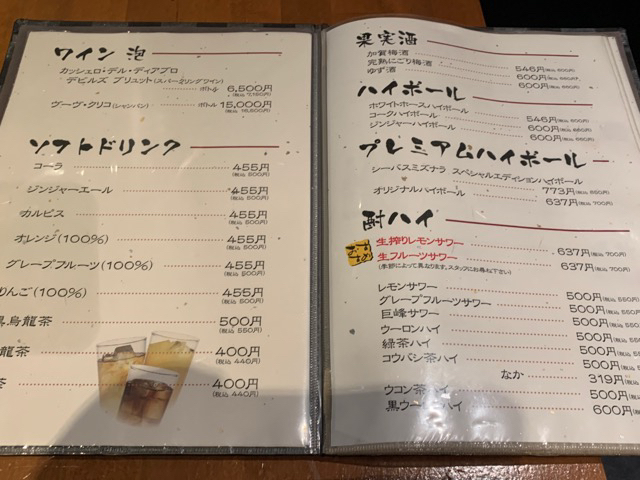 ワイン 泡
カッシェロ・デル・ディアブロ
デビルズ ブリュット(スパークリングワイン)
ボトル 6,500円
(税込 7,150円)
ヴーヴ・クリコ(シャンパン) ボトル 15,000円
(税込 16,500円)
ソフトドリンク
コーラ 455円
(税込 500円)
ジンジャーエール 455円
(税込 500円)
カルピス 455円
(税込 500円)
オレンジ(100%) 455円
(税込 500円)
グレープフルーツ(100%) 455円
(税込 500円)
りんご(100%) 455円
(税込 500円)
黒烏龍茶 500円
(税込 550円)
龍茶 400円
(税込 440円)
茶 400円
(税込 440円)
果実酒
加賀梅酒 546円(税込 600円)
完熟にごり梅酒 600円(税込 660円)
ゆず酒 600円(税込 660円)
ハイボール
ホワイトホースハイボール 546円(税込 600円)
コークハイボール 600円(税込 660円)
ジンジャーハイボール 600円(税込 660円)
プレミアムハイボール
シーバスミズナラ スペシャルエディションハイボール
773円(税込 850円)
オリジナルハイボール 637円(税込 700円)
酎ハイ
生搾りレモンサワー 637円(税込 700円)
生フルーツサワー 637円(税込 700円)
(季節によって異なります。スタッフにお尋ね下さい)
レモンサワー 500円(税込
グレープフルーツサワー 500円(税込
巨峰サワー 500円(税込
ウーロンハイ 500円(税込
緑茶ハイ 500円(税込
コウバシ茶ハイ 500円(税込
なか 319円(税込
ウコン茶ハイ 500円(税込
黒ウーロンハイ 600円(税込